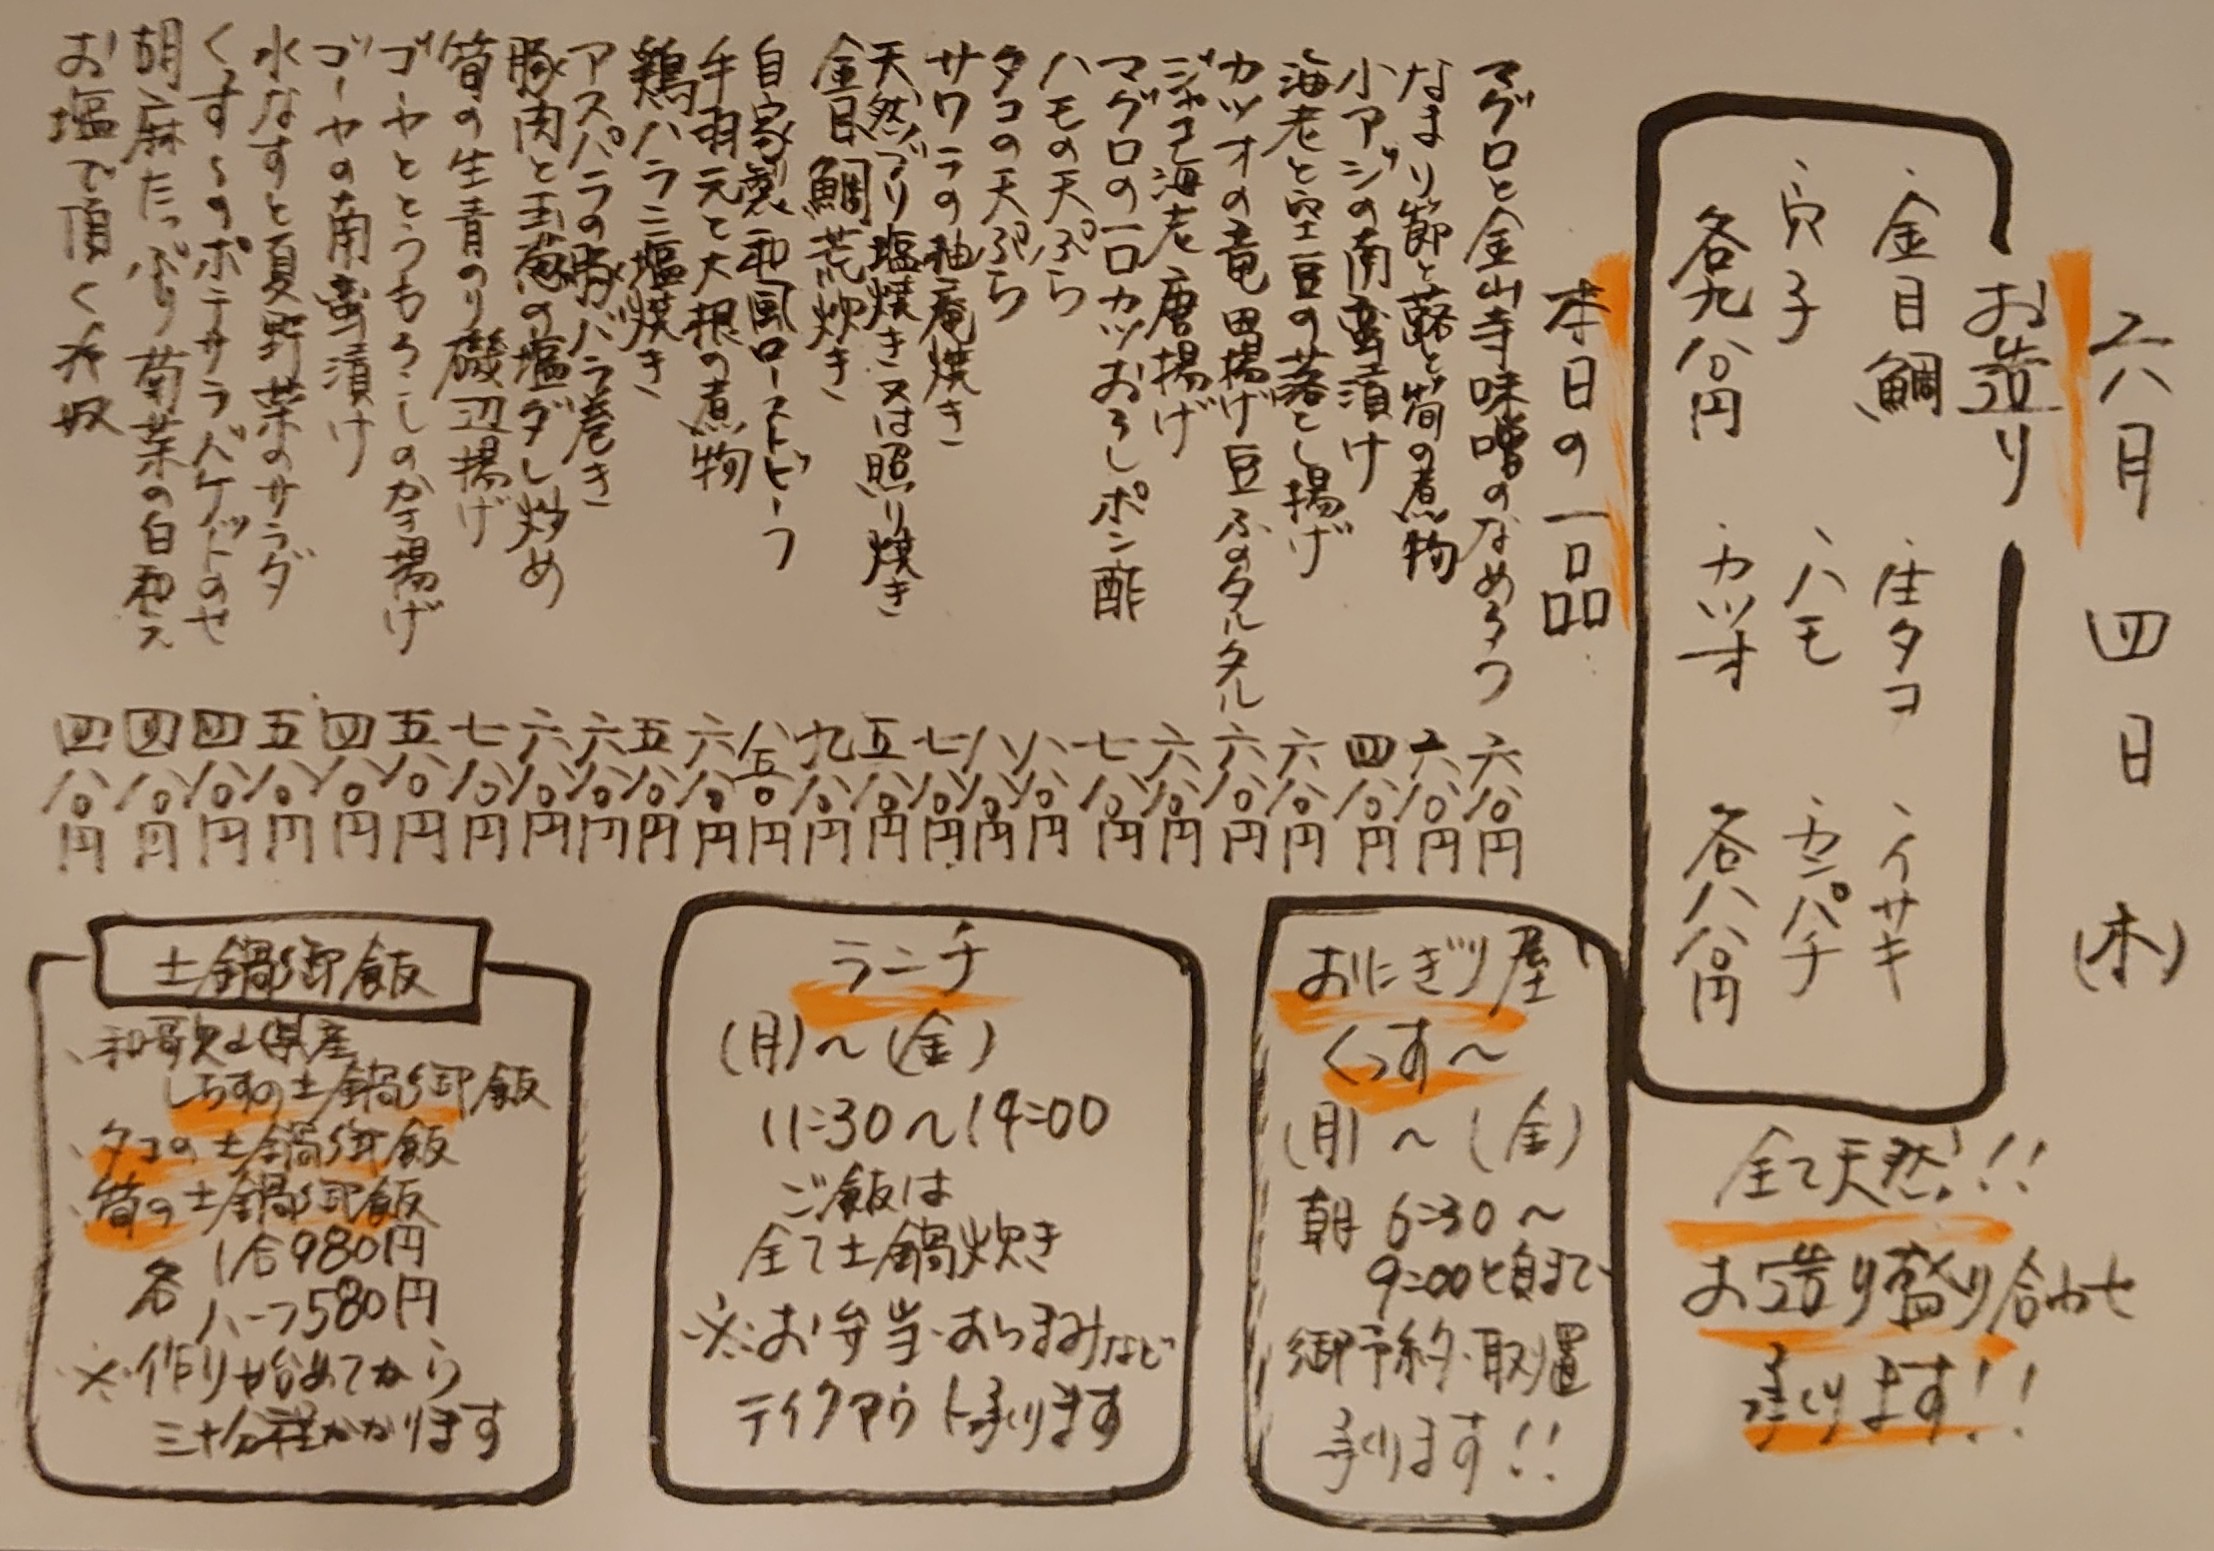 六月四日(木)
お造り
、金目鯛
、生タコ
、イサキ
、穴子
、ハモ
、カンパチ
各九八〇円
、カツオ
各八八〇円
全て天然!!
お造り盛り合わせ
承ります!!
本日の一品
マグロと金山寺味噌のなめろう 六八〇円
なまり節と蕗と筍の煮物 六八〇円
小アジの南蛮漬け 四八〇円
海老と空豆の落とし揚げ 六八〇円
カツオの竜田揚げ豆ふのタルタル 六八〇円
ジャコ海老唐揚げ 六八〇円
マグロの一口カツおろしポン酢 七八〇円
ハモの天ぷら 八八〇円
タコの天ぷら 八八〇円
サワラの柚庵焼き 七八〇円
天然ブリ塩焼き又は照り焼き 五八〇円
金目鯛荒炊き 九八〇円
自家製和風ローストビーフ 八五〇円
手羽元と大根の煮物 六八〇円
鶏ハラミ塩焼き 五八〇円
アスパラの豚バラ巻き 六八〇円
豚肉と玉葱の塩ダレ炒め 六八〇円
筍の生青のり磯辺揚げ 七八〇円
ゴーヤととうもろこしのかき揚げ 五八〇円
ゴーヤの南蛮漬け 四八〇円
水なすと夏野菜のサラダ 五八〇円
くす〜のポテサラバケットのせ 四八〇円
胡麻たっぷり菊菜の白和え 四八〇円
お塩で頂く冷奴 四八〇円
おにぎり屋
くっす〜
(月)〜(金)
朝 6:30〜
9:00と頃まで
御予約・取置
承ります!!
ランチ
(月)〜(金)
11:30〜14:00
ご飯は
全て土鍋炊き
※お弁当・おつまみなど
テイクアウト承ります
土鍋御飯
、和歌山県産
しらすの土鍋御飯
、タコの土鍋御飯
、筍の土鍋御飯
各 1合980円
ハーフ580円
※作り始めてから
三十分程かかります